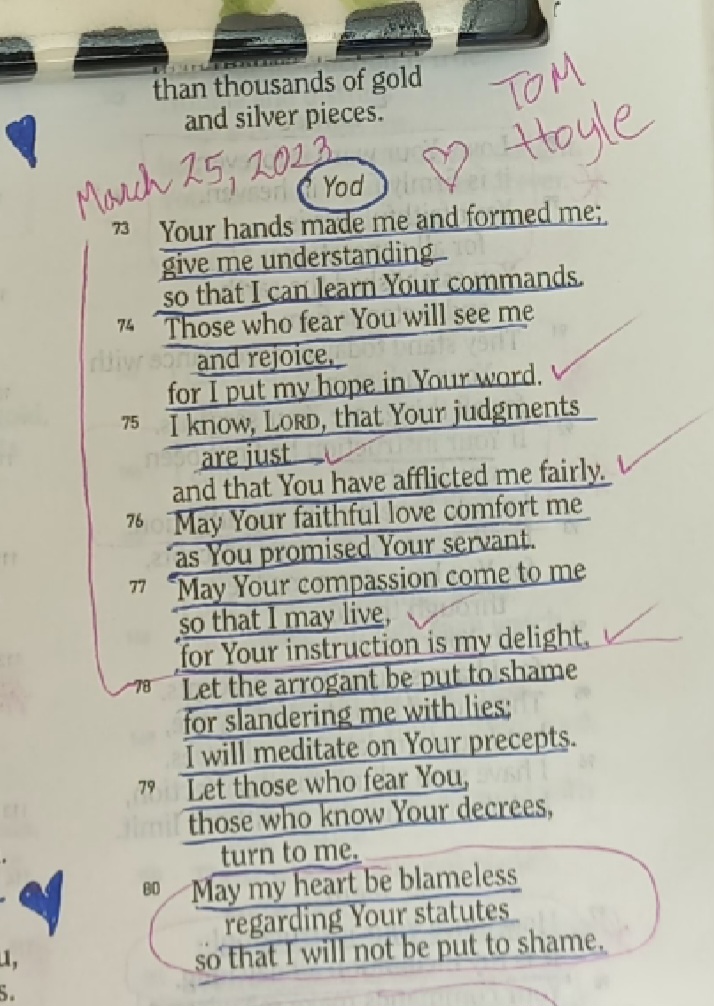 than thousands of gold
and silver pieces.
TOM
Hoyle
March 25, 2023
Yod
73 Your hands made me and formed me;
give me understanding
so that I can learn Your commands.
74 Those who fear You will see me
and rejoice,
for I put my hope in Your word.
75 I know, LORD, that Your judgments
are just
and that You have afflicted me fairly.
76 May Your faithful love comfort me
as You promised Your servant.
77 May Your compassion come to me
so that I may live,
for Your instruction is my delight.
78 Let the arrogant be put to shame
for slandering me with lies;
I will meditate on Your precepts.
79 Let those who fear You,
those who know Your decrees,
turn to me.
80 May my heart be blameless
regarding Your statutes
so that I will not be put to shame.
u,
s.